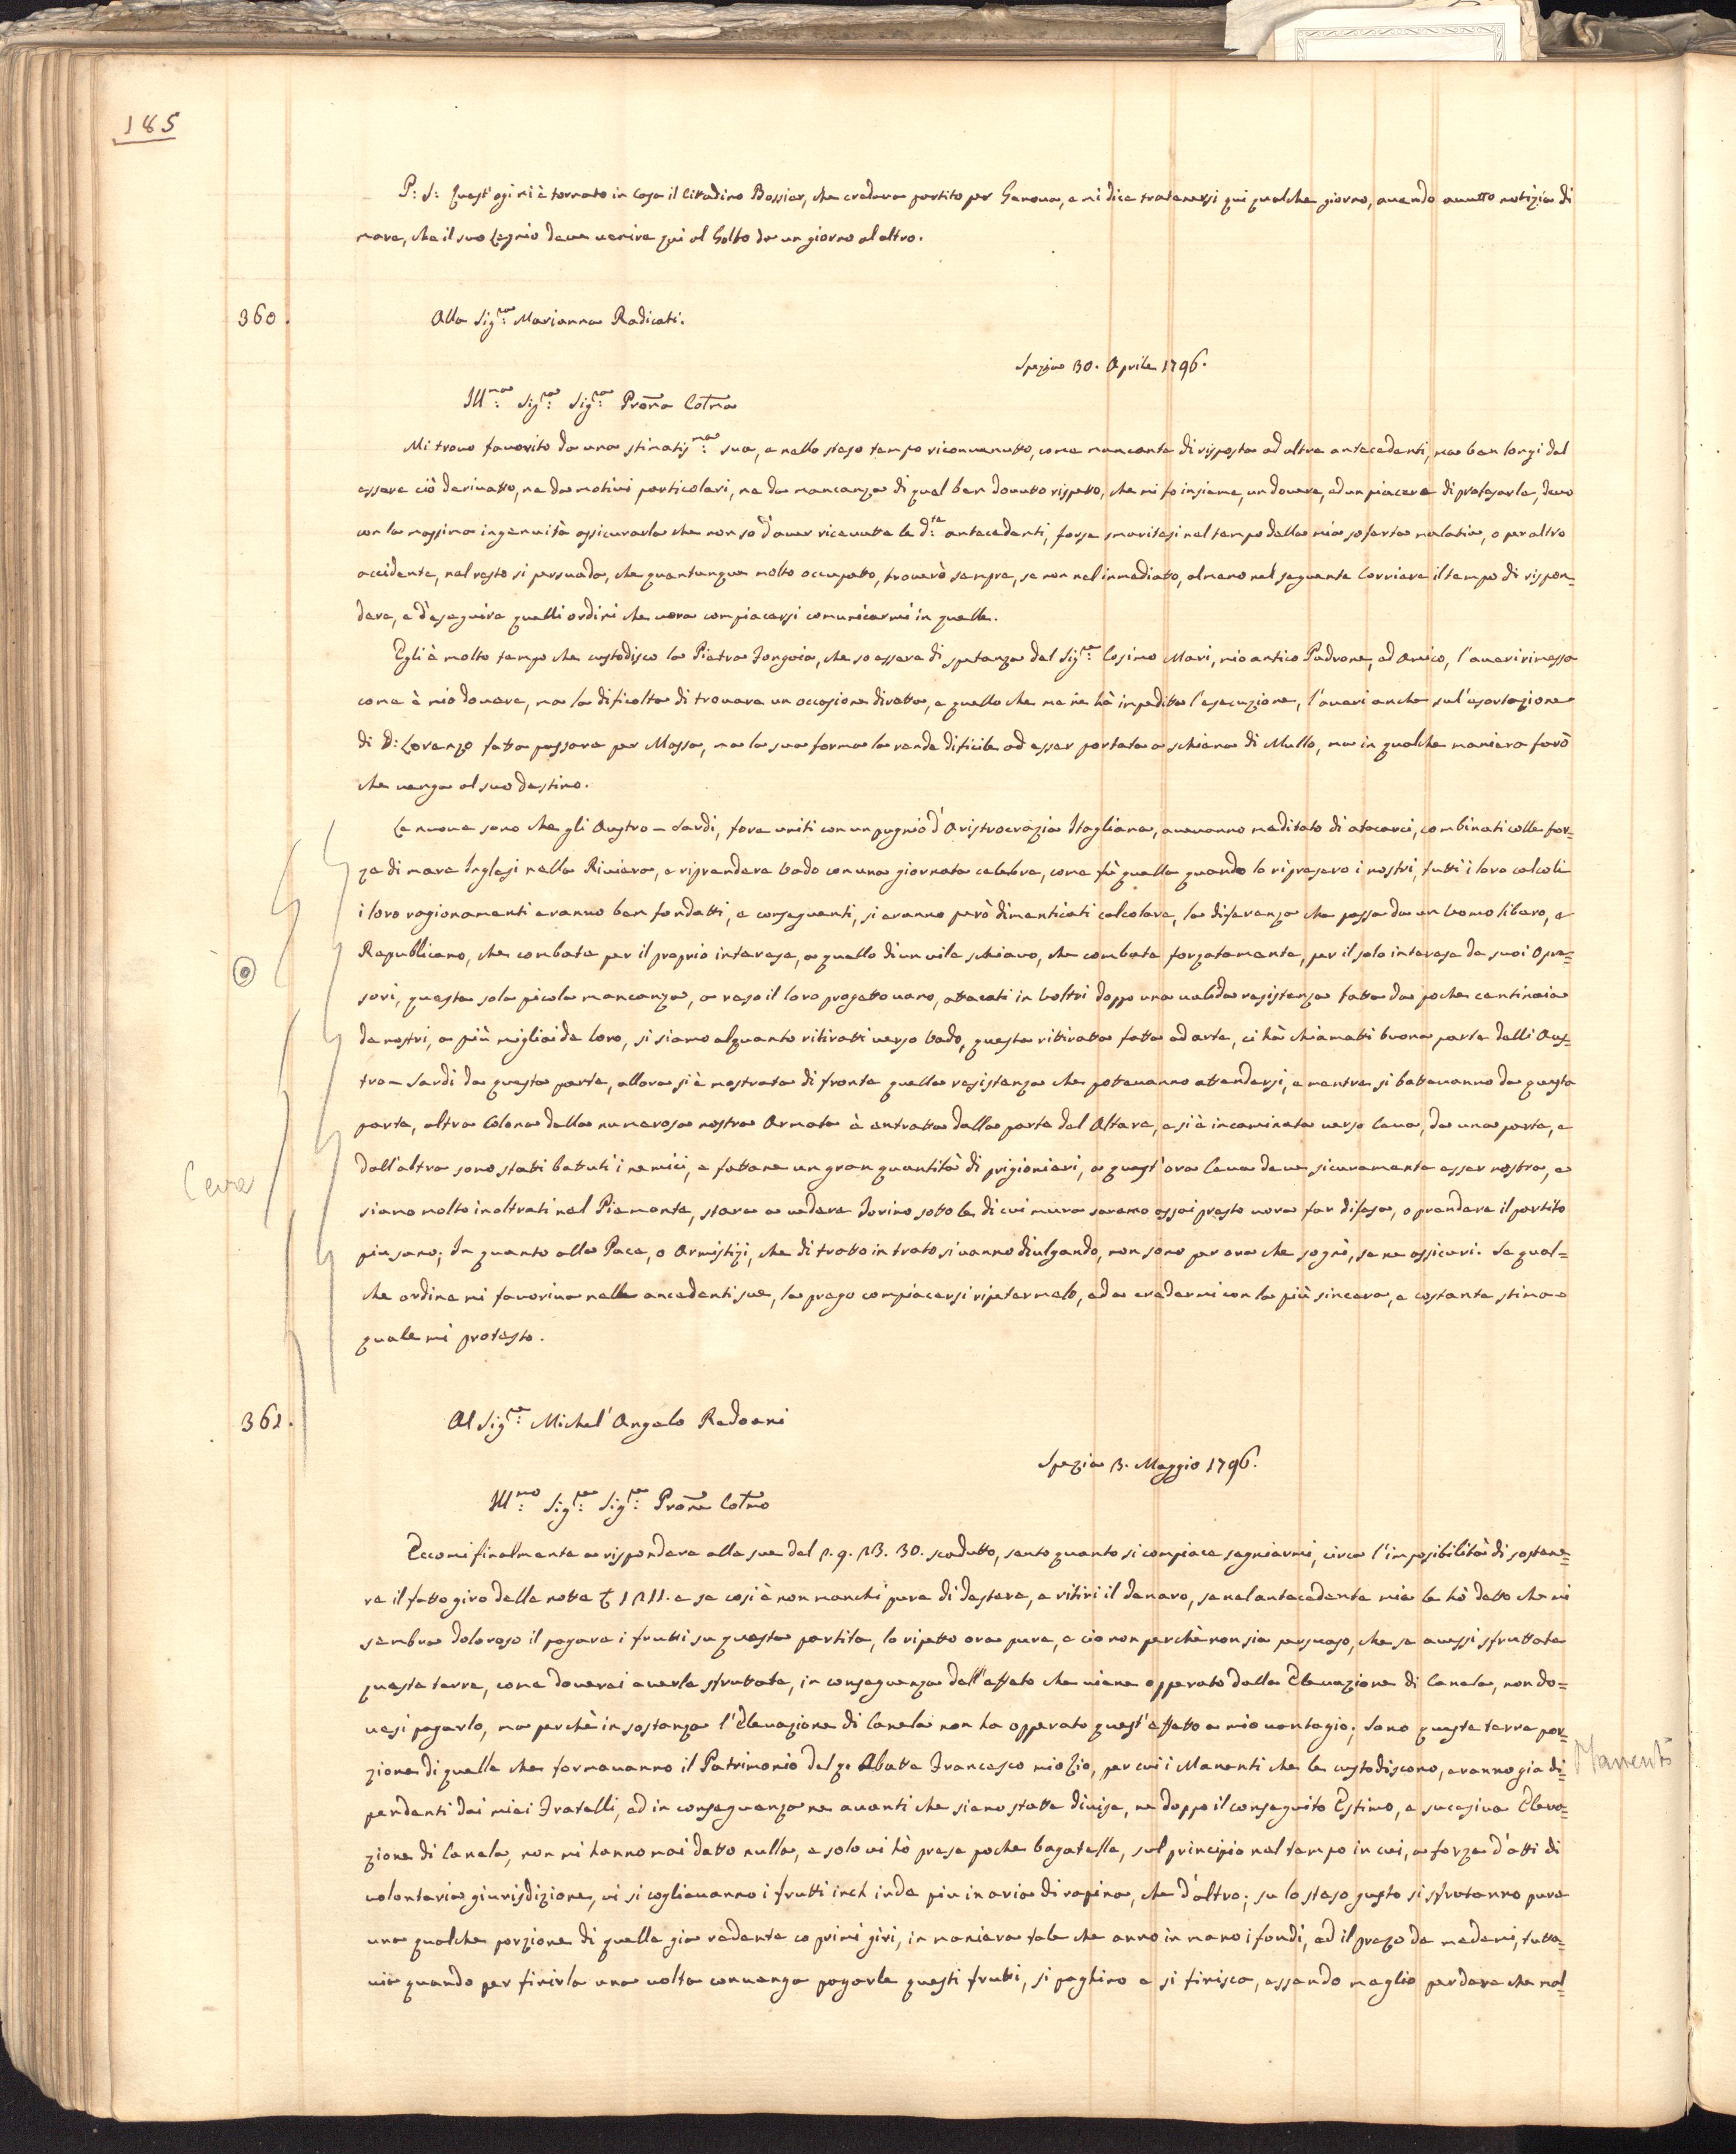 185
P: S: Quest'ogi mi è tornato in Casa il Cittadino Bossier, che credeva partito per Genova, e mi dice tratenersi qui qualche giorno, avendo avutto notizia di
mare, che il suo Legnio deve venire qui al Golfo da un giorno al altro.
360.
Alla Sig:ra Marianna Radicati.
Spezia 30. Aprile 1796.
Ill:ma Sig:ra Sig:ra Prona Colma
Mi trovo favorito da una stimatis:ma sua, e nello steso tempo riconvenutto, come mancante di risposta ad altre antecedenti, ma ben longi dal
essere ciò derivatto, ne da motivi particolari, ne da mancanza di quel ben dovutto rispetto, che mi fo insieme, un dovere, ed un piacere di profesarle, devo
con la massima ingenuità assicurarla che non so d'aver ricevutte le d:te antecedenti, forse smaritesi nel tempo della mia soferta malatia, o per altro
accidente, nel resto si persuada, che quantunque molto occupatto, troverò sempre, se non nel inmediatto, almeno nel seguente Corriere il tempo di rispon=
dere, e d'eseguire quelli ordini che vora compiacersi comunicarmi in quelle.
Egli è molto tempo che custodisco la Pietra Fongaia, che so essere di spetanza del Sig:re Cosimo Mari, mio antico Padrone, ed Amico, l'averi rimessa
come è mio dovere, ma la dificolta di trovare un occasione diretta, e quello che me ne hà impedita l'esecuzione, l'averi anche sul'esortazione
di D: Lorenzo fatta passare per Massa, ma la sua forma la rende dificile ad esser portata a schiena di Mullo, ma in qualche maniera farò
che venga al suo destino.
Le nuove sono che gli Austro-Sardi, fore uniti con un pugnio d'Aristrocrazia Itagliana, avevanno meditato di atacarci, combinati colle for=
ze di mare Inglesi nella Riviera, e riprendere Vado con una giornata celebre, come fù quella quando lo ripresero i nostri, tutti i loro calcoli
i loro ragionamenti eranno ben fondatti, e conseguenti, si eranno però dimenticati calcolare, la diferenza che passa da un Uomo libero, e
Republlicano, che combate per il proprio interese, a quello di un vile schiavo, che combate forzatamente, per il solo interese de suoi Opre=
sori, questa sola picola mancanza, a reso il loro progetto vano, attacati in Voltri doppo una valida resistenza fatta da poche centinaia
de nostri, a più migliaide loro, si siamo alquanto ritiratti verso Vado, questa ritiratta fatta ad arte, ci hà chiamatti buona parte delli Aus=
tro-Sardi da questa parte, allora si è mostrata di fronte quella resistenza che potevanno attendersi, e mentre si batevanno da questa
parte, altra Colona della numerosa nostra Armata è entratta dalla parte del Altare, e si è incaminata verso Ceva, da una parte, e
dall'altra sono stati battuti i nemici, e fattane un gran quantità di prigionieri, a quest'ora Ceva deve sicuramente esser nostra, e
Ceva
siamo molto inoltrati nel Piemonte, stare a vedere Torino sotto le di cui mura saremo assai presto vora far difesa, o prendere il partito
piu sano; In quanto alla Pace, o Armistizi, che di tratto in trato si vanno divulgando, non sono per ora che sogni, se ne assicuri. Se qual=
che ordine mi favoriva nelle ancedenti sue, la prego compiacersi ripetermelo, ed a credermi con la più sincera, e costante stima
quale mi protesto.
361.
Al Sig:re Michel'Angelo Redoani
Spezia 3. Maggio 1796.
Ill:mo Sig:re Sig:re Prone Colmo
Eccomi finalmente a rispondere alle sue del 2. 9. 23. 30. scadutto, sento quanto si compiace segniarmi, circa l'imposibilità di sostene=
re il fatto giro delle notte 1211. e se cosi è non manchi pure di destere, e ritiri il denaro, se nel antecedente mia le hò detto che mi
sembra doloroso il pagare i frutti su questa partita, lo ripetto ora pure, e cio non perchè non sia persuaso, che se avessi sfruttate
queste terre, come doverei averle sfruttate, in conseguenza dell'effeto che viene opperato dalla Elevazione di Canela, non do=
vesi pagarlo, ma perchè in sostanza l'Elevazione di Canela non ha opperato quest'effetto a mio vantagio; Sono queste terre por=
zione di quelle che formavanno il Patrimonio del q. Abatte Francesco mio Zio, per cui i Manenti che le custodiscono, eranno gia di=
Manenti
pendenti dai miei Fratelli, ed in conseguenza ne avanti che sieno statte divise, ne doppo il conseguito Estimo, e sucesiva Eleva=
zione di Canela, non mi hanno mai datto nulla, e solo vi hò prese poche bagatelle, sul principio nel tempo in cui, a forza d'atti di
volontaria giurisdizione, vi si coglievanno i frutti inch inde piu in aria di rapina, che d'altro; su lo steso gusto si sfrutanno pure
una qualche porzione di quelle gia redente co primi giri, in maniera tale che anno in mano i fondi, ed il prezo de medemi, tutta=
via quando per finirla una volta convenga pagarle questi frutti, si paghino e si finisca, essendo meglio perdere che mal=